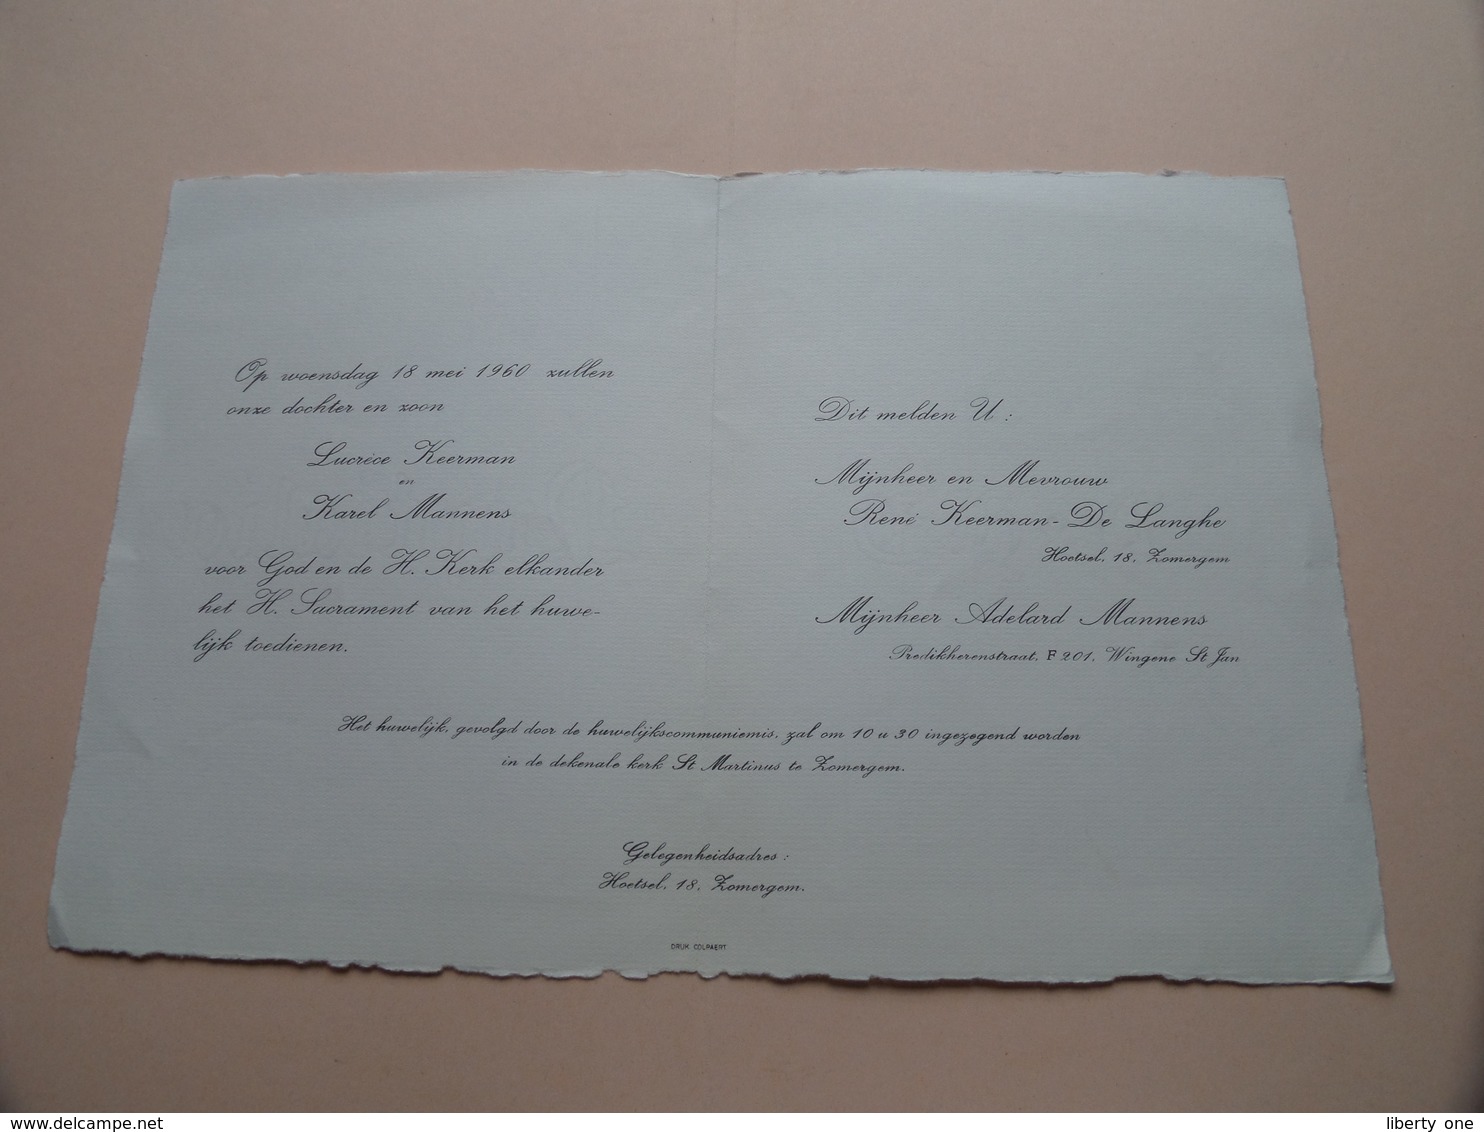 Op woensdag 18 mei 1960 zullen
onze dochter en zoon
Lucrèce Keerman
en
Karel Mannens
voor God en de H. Kerk elkander
het H. Sacrament van het huwe-
lijk toedienen.
Dit melden U :
Mijnheer en Mevrouw
René Keerman - De Langhe
Hoetsel, 18, Zomergem
Mijnheer Adelard Mannens
Predikherenstraat, F 201, Wingene St Jan
Het huwelijk, gevolgd door de huwelijkscommuniemis, zal om 10 u 30 ingezegend worden
in de dekenale kerk St Martinus te Zomergem.
Gelegenheidsadres :
Hoetsel, 18, Zomergem.
DRUK COLPAERT
www.delcampe.net
liberty one